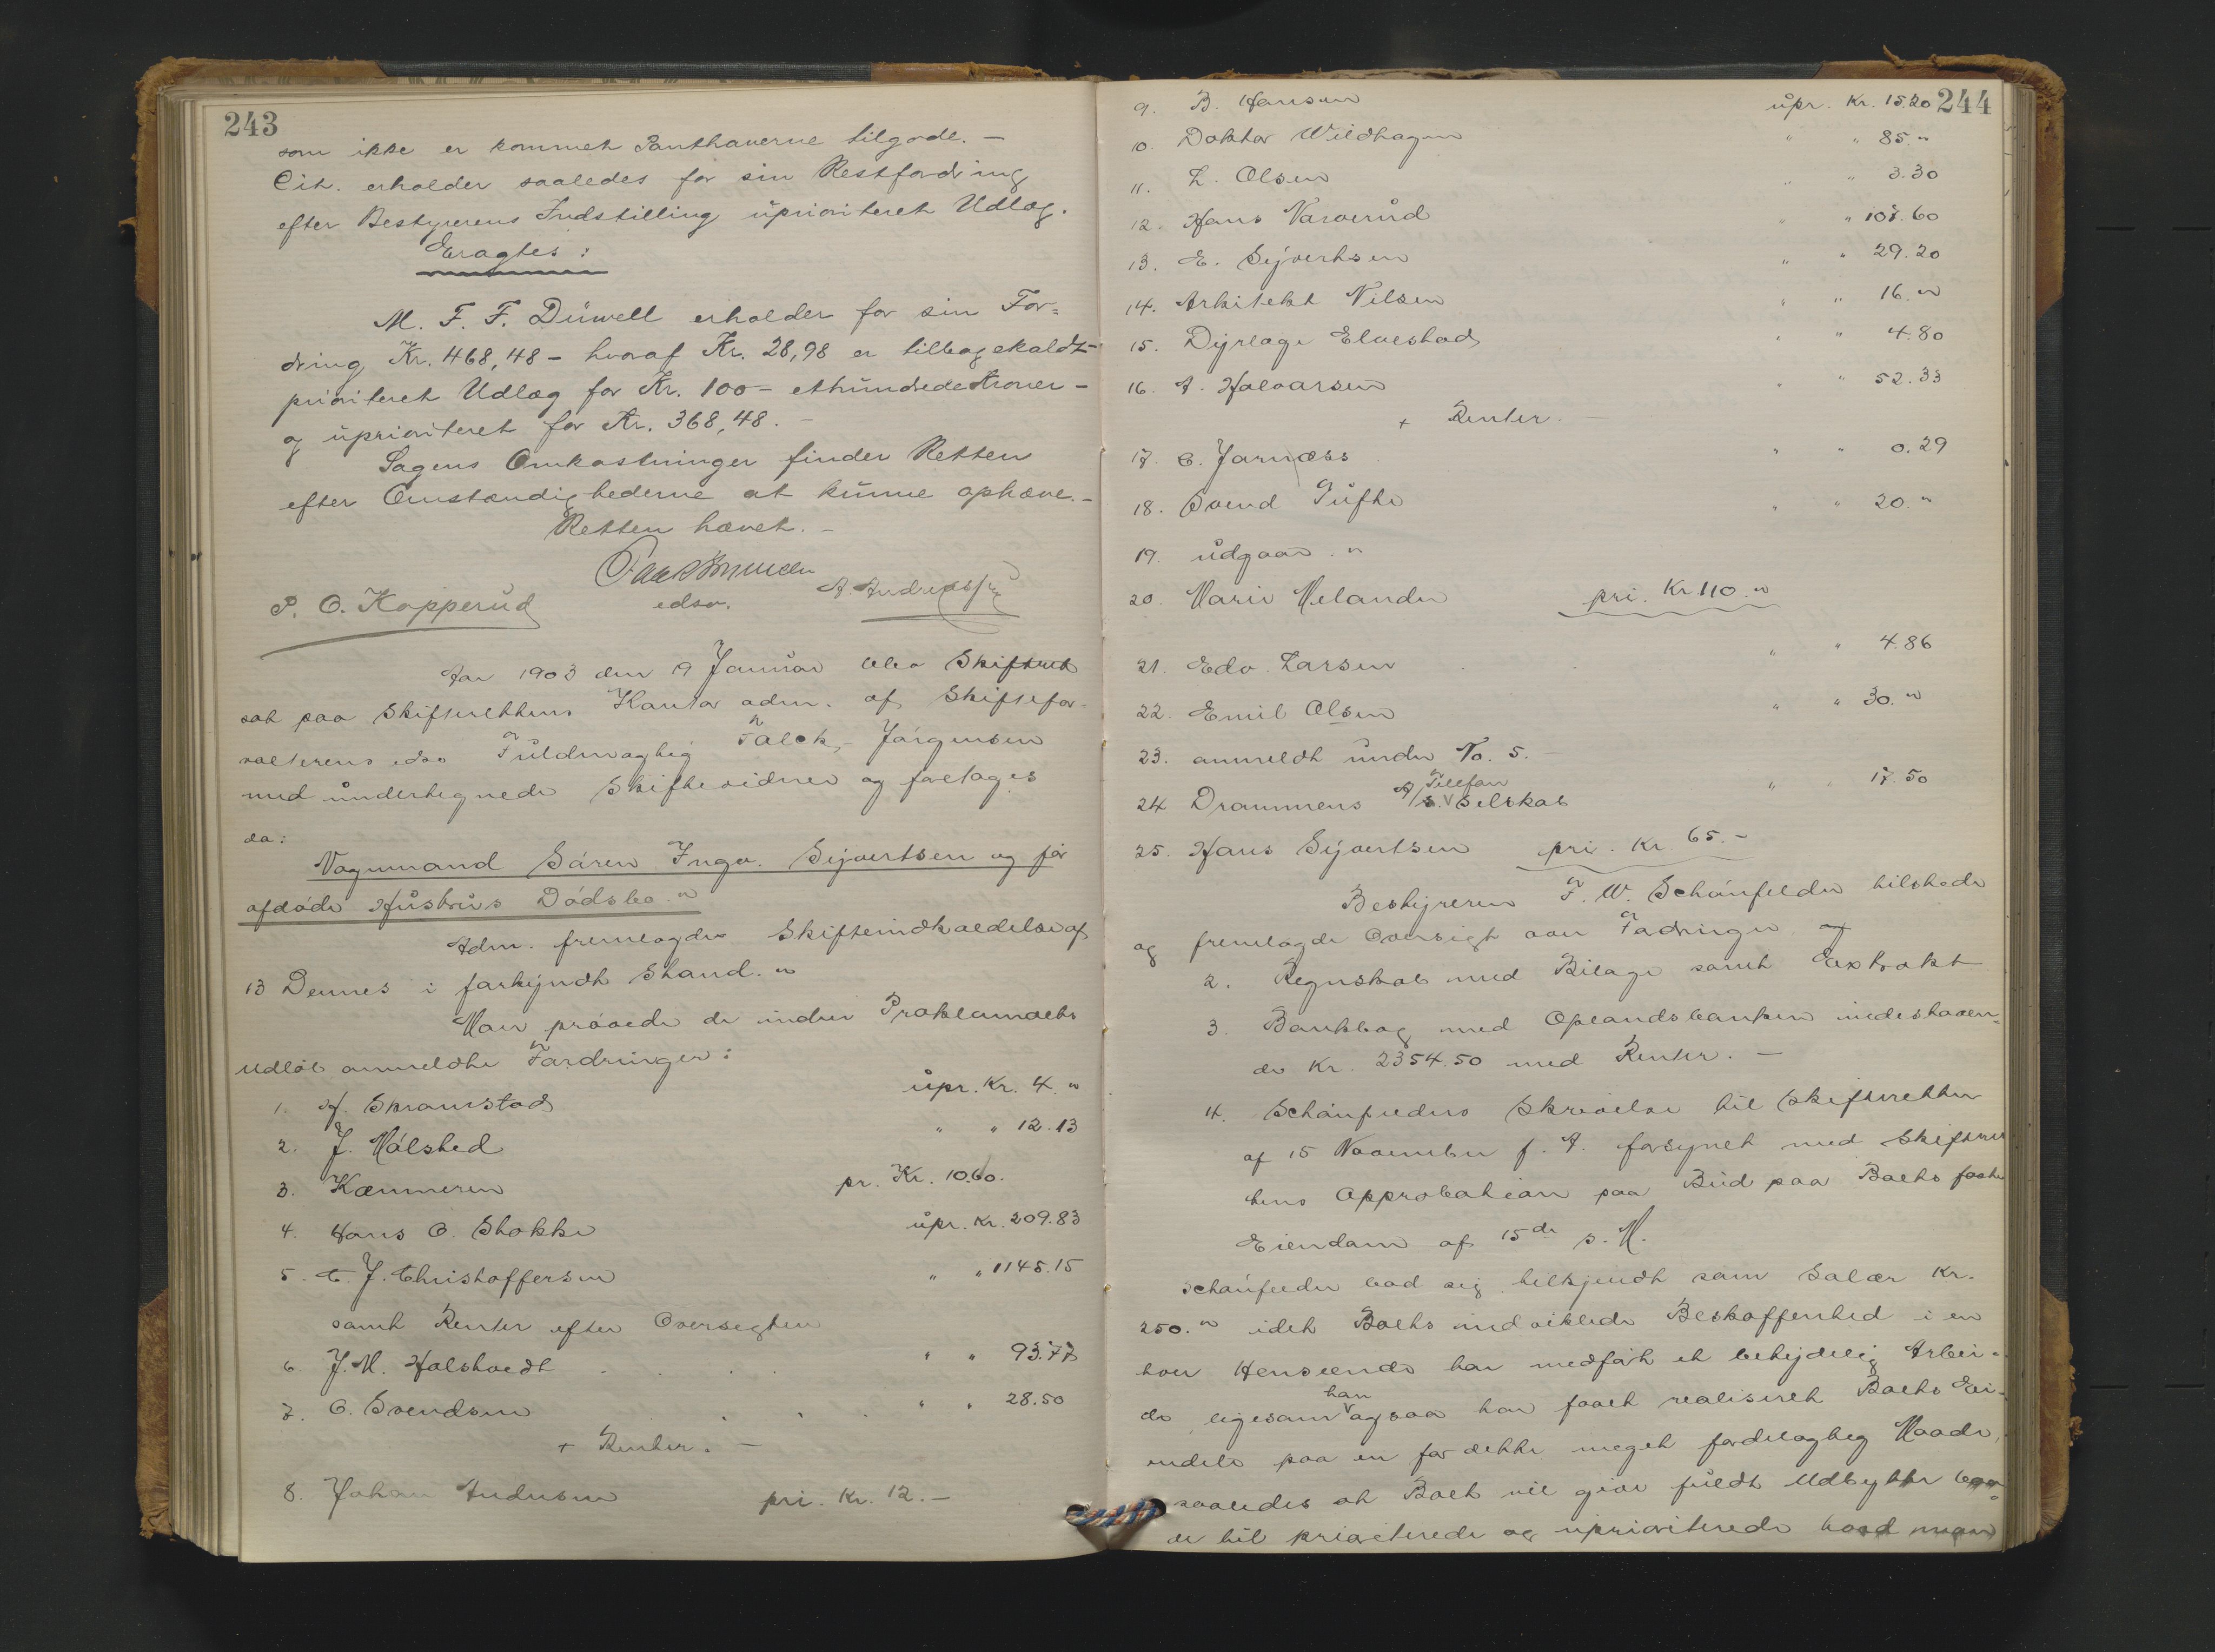 243
som ikke er kommet Panthaverne tilgode. —
Cit. erholder saaledes for sin Restfordring
efter Bestyrerens Indstilling uprioriteret Udlæg.
Eragtes:
M. F. F. Düwell erholder for sin For=
dring Kr. 468,48 – hvoraf Kr. 28,98 er tilbagekaldt –
prioriteret Udlæg for Kr. 100 – ethundredekroner –
og uprioriteret for Kr. 368,48. –
Sagens Omkostninger finder Retten
efter Omstændighederne at kunne ophæve. –
Retten hævet. –
edsv.
P. O. Kopperud
Aar 1903 den 19 Januar blev Skifteret
sat paa Skifterettens Kontor adm. af Skiftefor-
valterens edsv Fuldmægtig Falck-Jörgensen
med undertegnede Skiftevidner og foretoges
da:
Vognmand Sören Ingv. Sijvertsen og för
afdöde Hustrus Dödsbo. "
Adm. fremlagde Skifteindkaldelse af
13 Dennes i forkyndt Stand. "
Man prövede de under Proklamaets
Udløb anmeldte Fordringer:
1. H. Skramstad upr. Kr. 4. "
2. J. Mölsted " " 12.13
3. Kæmneren pr. Kr. 10.60.
4. Hans O. Stokke upr. Kr. 209.83
5. C. J. Christoffersen " " 1145.15
samt Renter efter Oversigten
6 J. M. Holstvedt " " 93.77
7. O. Svendsen " " 28.50
+ Renter. —
8. Johan Andersen pri. Kr. 12. –
244
9. B. Hansen upr. Kr. 15.20
10. Doktor Wildhagen " " 85. "
11. L. Olsen " " 3.30
12. Hans Narverud " " 107.60
13. E. Sijvertsen " " 29.20
14. Arkitekt Nilsen " " 16. "
15. Dyrlæge Elvestad " " 4.80
16. A. Halvorsen " " 52.33
+ Renter. —
17. C. Jarnæss " " 0.29
18. Svend Tufte " " 20. "
19. udgaar. "
20. Marie Melander pri. Kr 110. "
21. Edv. Larsen " " 4.86
22. Emil Olsen " " 30. "
23. anmeldt under No. 5. –
24 Drammens A/S. Telefon Selskab " " 17.50
25. Hans Sijvertsen pri. Kr 65. –
Bestyreren F. W. Schönfelder tilstede
og fremlagde Oversigt over Fordringer og
2. Regnskab med Bilage samt Extrakt
3. Bankbog med Oplandsbanken indestaaen-
de Kr. 2354.50 med Renter. —
4. Schönfelders Skrivelse til Skifteretten
af 15 November f. A. forsynet med Skifteret
tens Approbation paa Bud paa Boets faste
Eiendom af 15de s. M.
Schönfelder bad sig tilkjendt som Salær Kr.
250. " idet Boets indviklede Beskaffenhed i en
hver Henseende har medført et betydelig Arbei-
de ligesom han ogsaa har faaet realiseret Boets Ei-
endele paa en for dette meget fordelagtig Maade,
saaledes at Boet vil give fuldt Udbytte baa-
de til prioriterede og uprioriterede